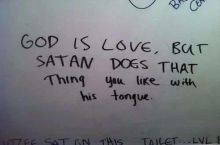 GOD IS LOVE, BUT
SATAN DOES THAT
Thing you like with
his tongue.
THIS TOILET...LVL